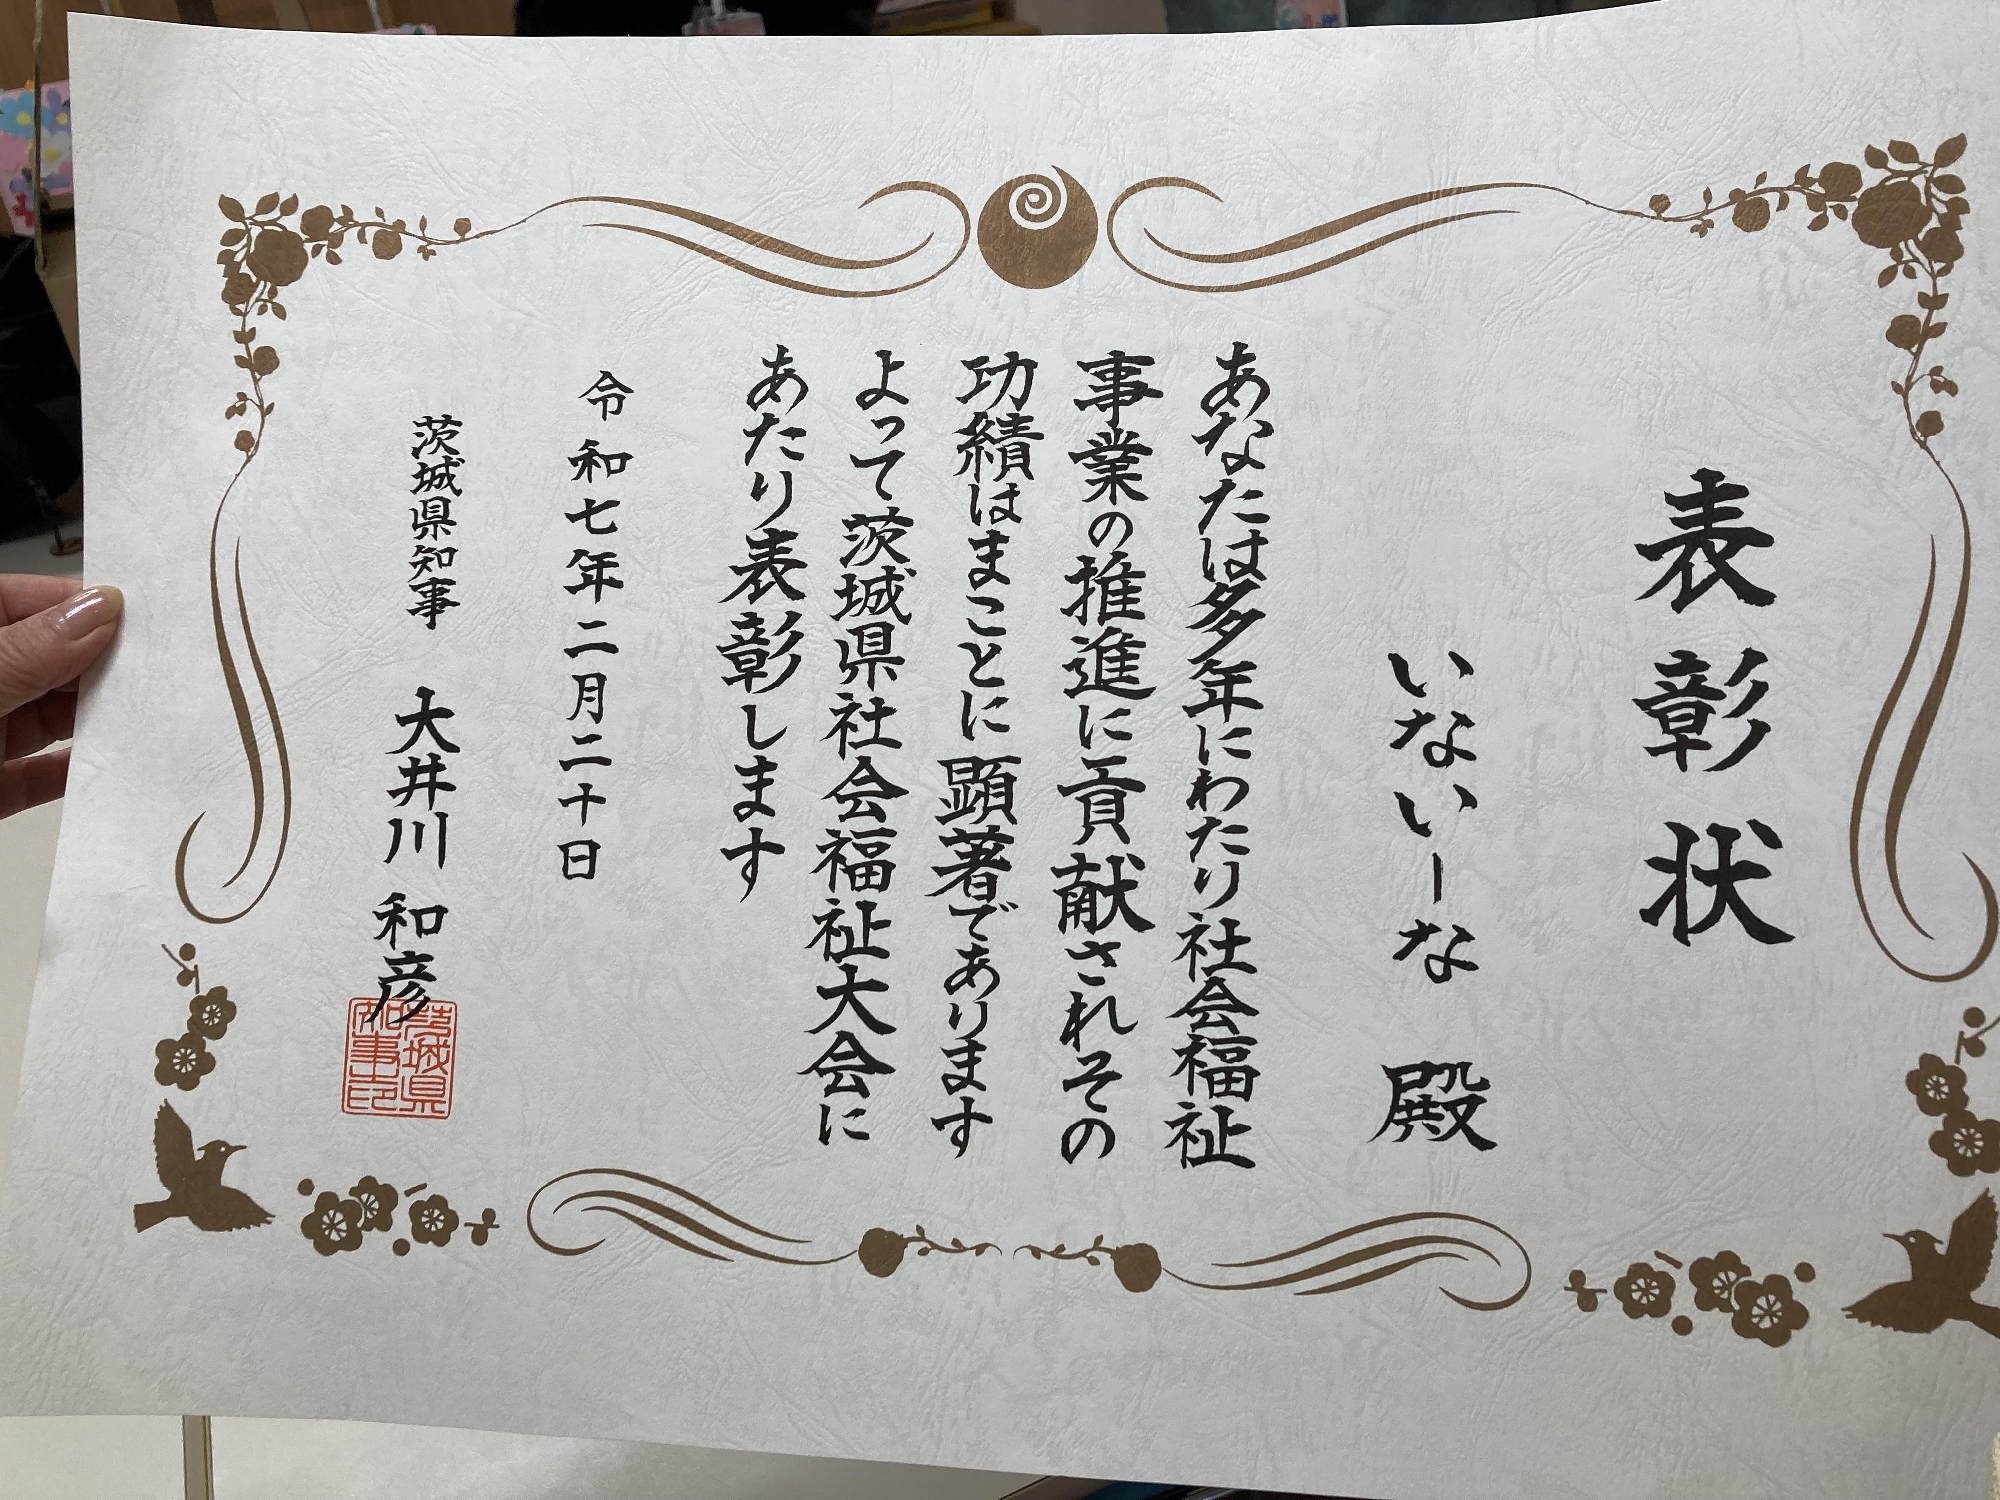 表彰状
いないいーな 殿
あなたは多年にわたり社会福祉
事業の推進に貢献されその
功績はまことに顕著であります
よって茨城県社会福祉大会に
あたり表彰します
令和七年二月二十日
茨城県知事 大井川 和彦
茨城県知事印